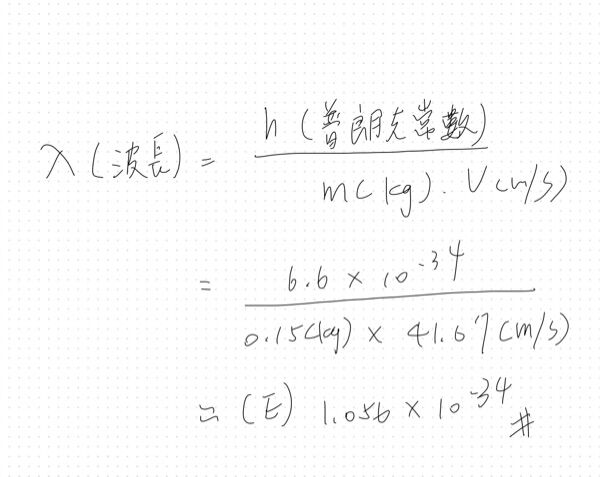 λ (波長) = h (普朗克常數) / m(kg) · V(m/s)
= 6.6 × 10⁻³⁴ / 0.15(kg) × 41.67(m/s)
≈ (E) 1.056 × 10⁻³⁴ #